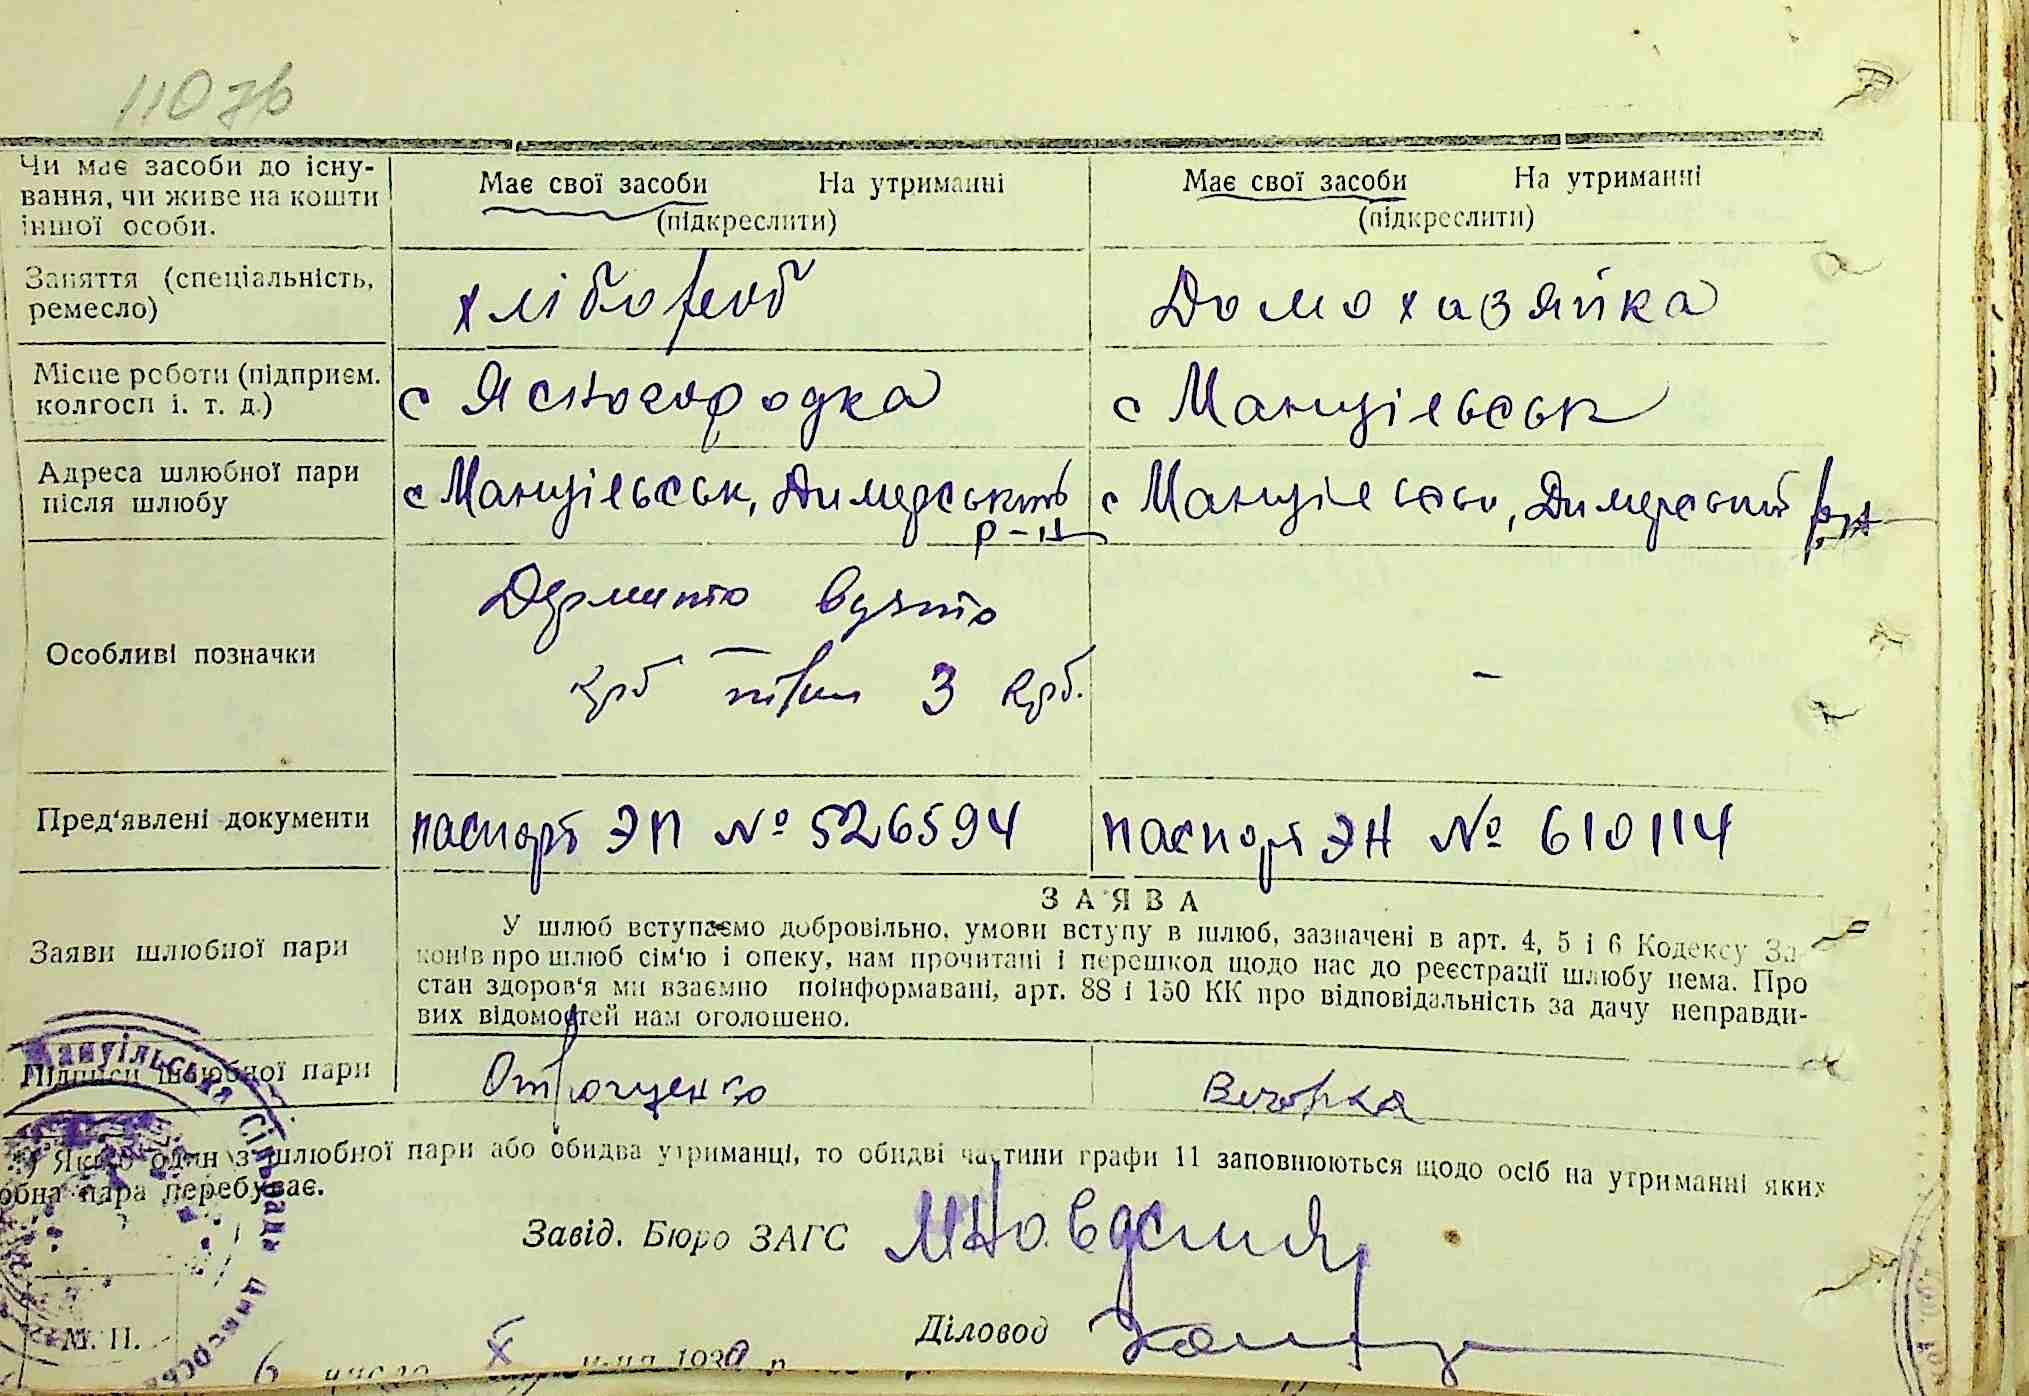 110 зв
Чи має засоби до існу-
вання, чи живе на кошти
іншої особи.
Має свої засоби На утриманні
(підкреслити)
Має свої засоби На утриманні
(підкреслити)
Заняття (спеціальність,
ремесло)
хлібороб
Домохазяйка
Місце роботи (підприєм.
колгосп і. т. д.)
с Ясногородка
с Мануільськ
Адреса шлюбної пари
після шлюбу
с Мануільськ, Димерський
р-н
с Мануільськ, Димерський р-н
Особливі позначки
взято
крб 3 крб.
-
Пред'явлені документи
паспорт ЭП № 526594
паспорт ЭН № 610114
Заяви шлюбної пари
ЗАЯВА
У шлюб вступаємо добровільно, умови вступу в шлюб, зазначені в арт. 4, 5 і 6 Кодексу За-
конів про шлюб сім'ю і опеку, нам прочитані і перешкод щодо нас до реєстрації шлюбу нема. Про
стан здоров'я ми взаємно поінформавані, арт. 88 і 150 КК про відповідальність за дачу неправди-
вих відомостей нам оголошено.
Підписи шлюбної пари
Отрощенко
Вечорка
Якщо один з шлюбної пари або обидва утриманці, то обидві частини графи 11 заповнюються щодо осіб на утриманні яких
шлюбна пара перебуває.
Завід. Бюро ЗАГС
Діловод
М. П.
6 число X
Мануільська Сільрада